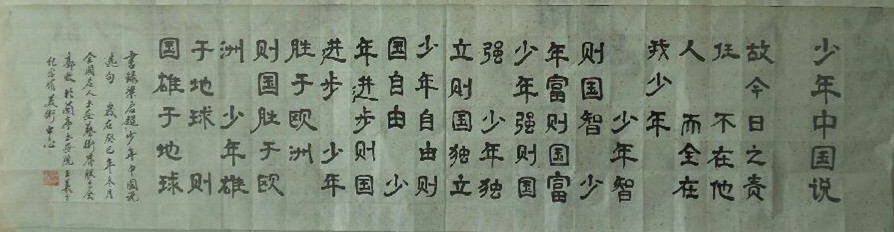 少年中国说
故今日之责
任 不在他
人 而全在
我少年
少年智
则国智 少
年富则国富
少年强则国
强 少年独
立则国独立
少年自由则
国自由 少
年进步则国
进步 少年
胜于欧洲
则国胜于欧
洲 少年雄
于地球 则
国雄于地球
梁启超少年中國说
选句 岁在癸巳年冬月
全國名人书画藝術界联合会
於蘭亭书学院王羲之
纪念馆美術中心